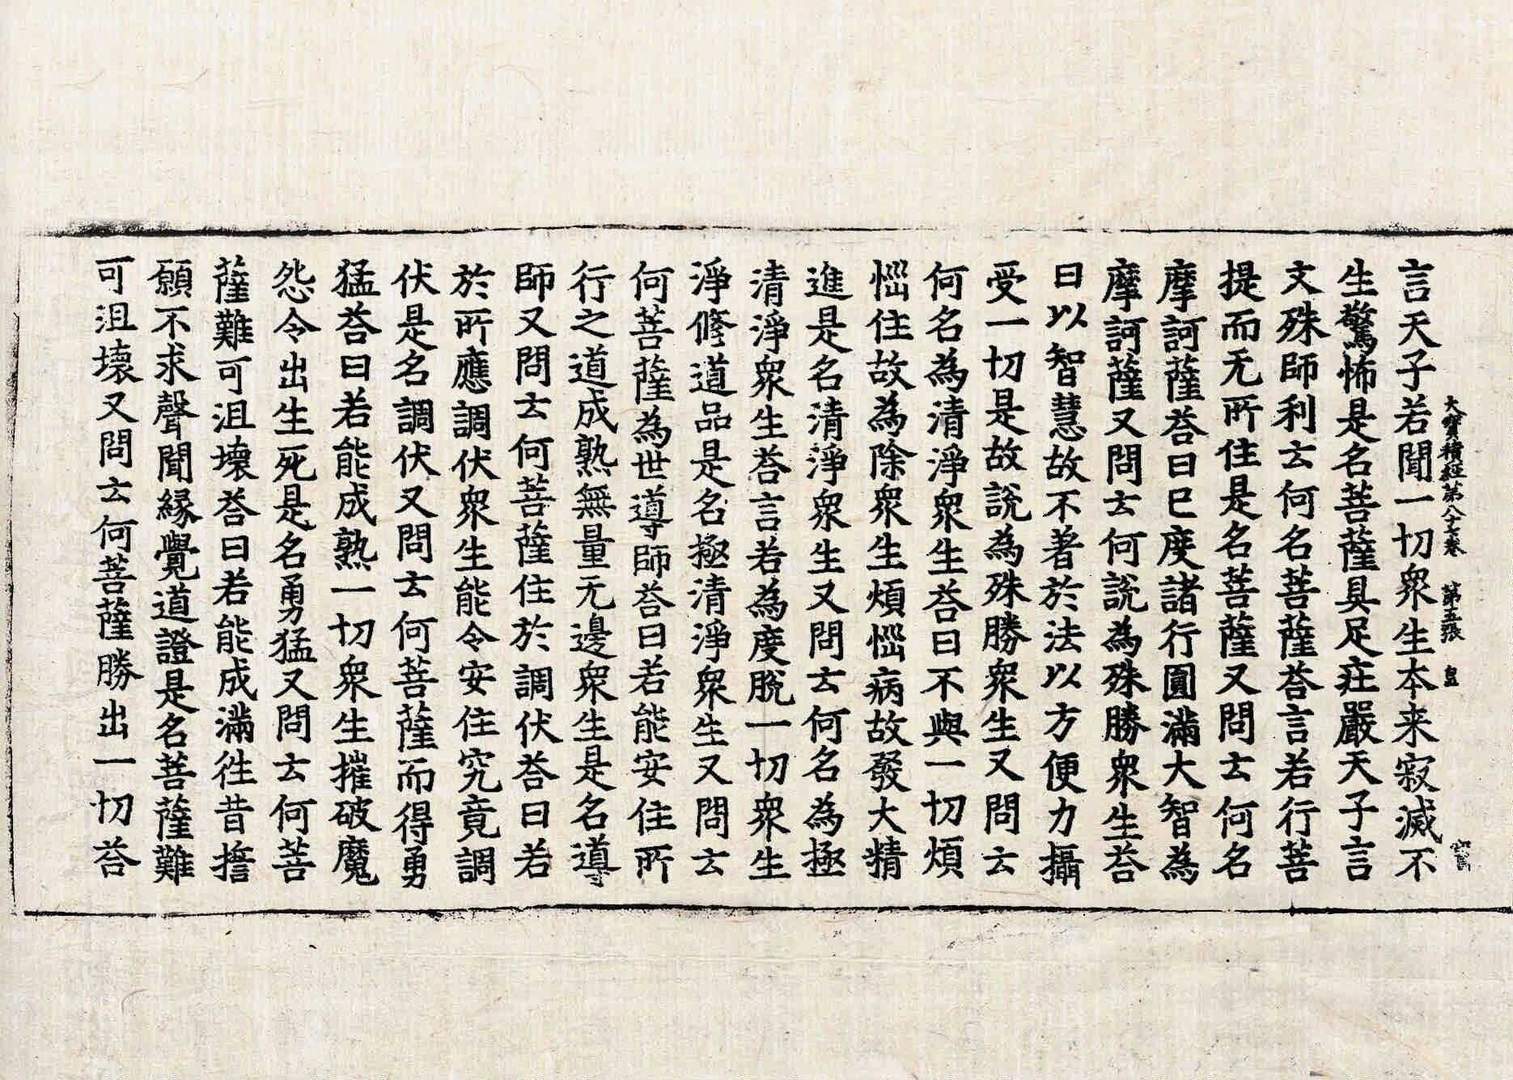 大寶積經第八十七卷 第五張 皇
言天子若聞一切衆生本来寂滅不
生驚怖是名菩薩具足莊嚴天子言
文殊師利云何名菩薩荅言若行菩
提而无所住是名菩薩又問云何名
摩訶薩荅曰已度諸行圓滿大智為
摩訶薩又問云何說為殊勝衆生荅
曰以智慧故不著於法以方便力攝
受一切是故說為殊勝衆生又問云
何名為清淨衆生荅曰不與一切煩
惱住故為除衆生煩惱病故發大精
進是名清淨衆生又問云何名為極
清淨衆生荅言若為度脫一切衆生
淨修道品是名極清淨衆生又問云
何菩薩為世導師荅曰若能安住所
行之道成熟無量无邊衆生是名導
師又問云何菩薩住於調伏荅曰若
於所應調伏衆生能令安住究竟調
伏是名調伏又問云何菩薩而得勇
猛荅曰若能成熟一切衆生摧破魔
怨令出生死是名勇猛又問云何菩
薩難可沮壞荅曰若能成滿往昔誓
願不求聲聞緣覺道證是名菩薩難
可沮壞又問云何菩薩勝出一切荅